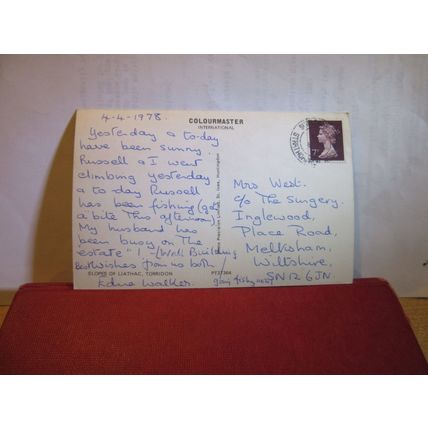 4-4-1978.
COLOURMASTER
INTERNATIONAL
Yesterday & to-day
have been sunny.
Russell & I went
climbing yesterday
& to day Russell
has been fishing (got
a bite this afternoon)
My husband has
been busy on the
estate"! - (Wall Building
Best wishes from us both
Edna Walker.
SLOPES OF LIATHAC, TORRIDON
PT37304
Mrs West.
c/o The Surgery.
Inglewood,
Place Road,
Melksham.
Wiltshire,
SN12 6JN.